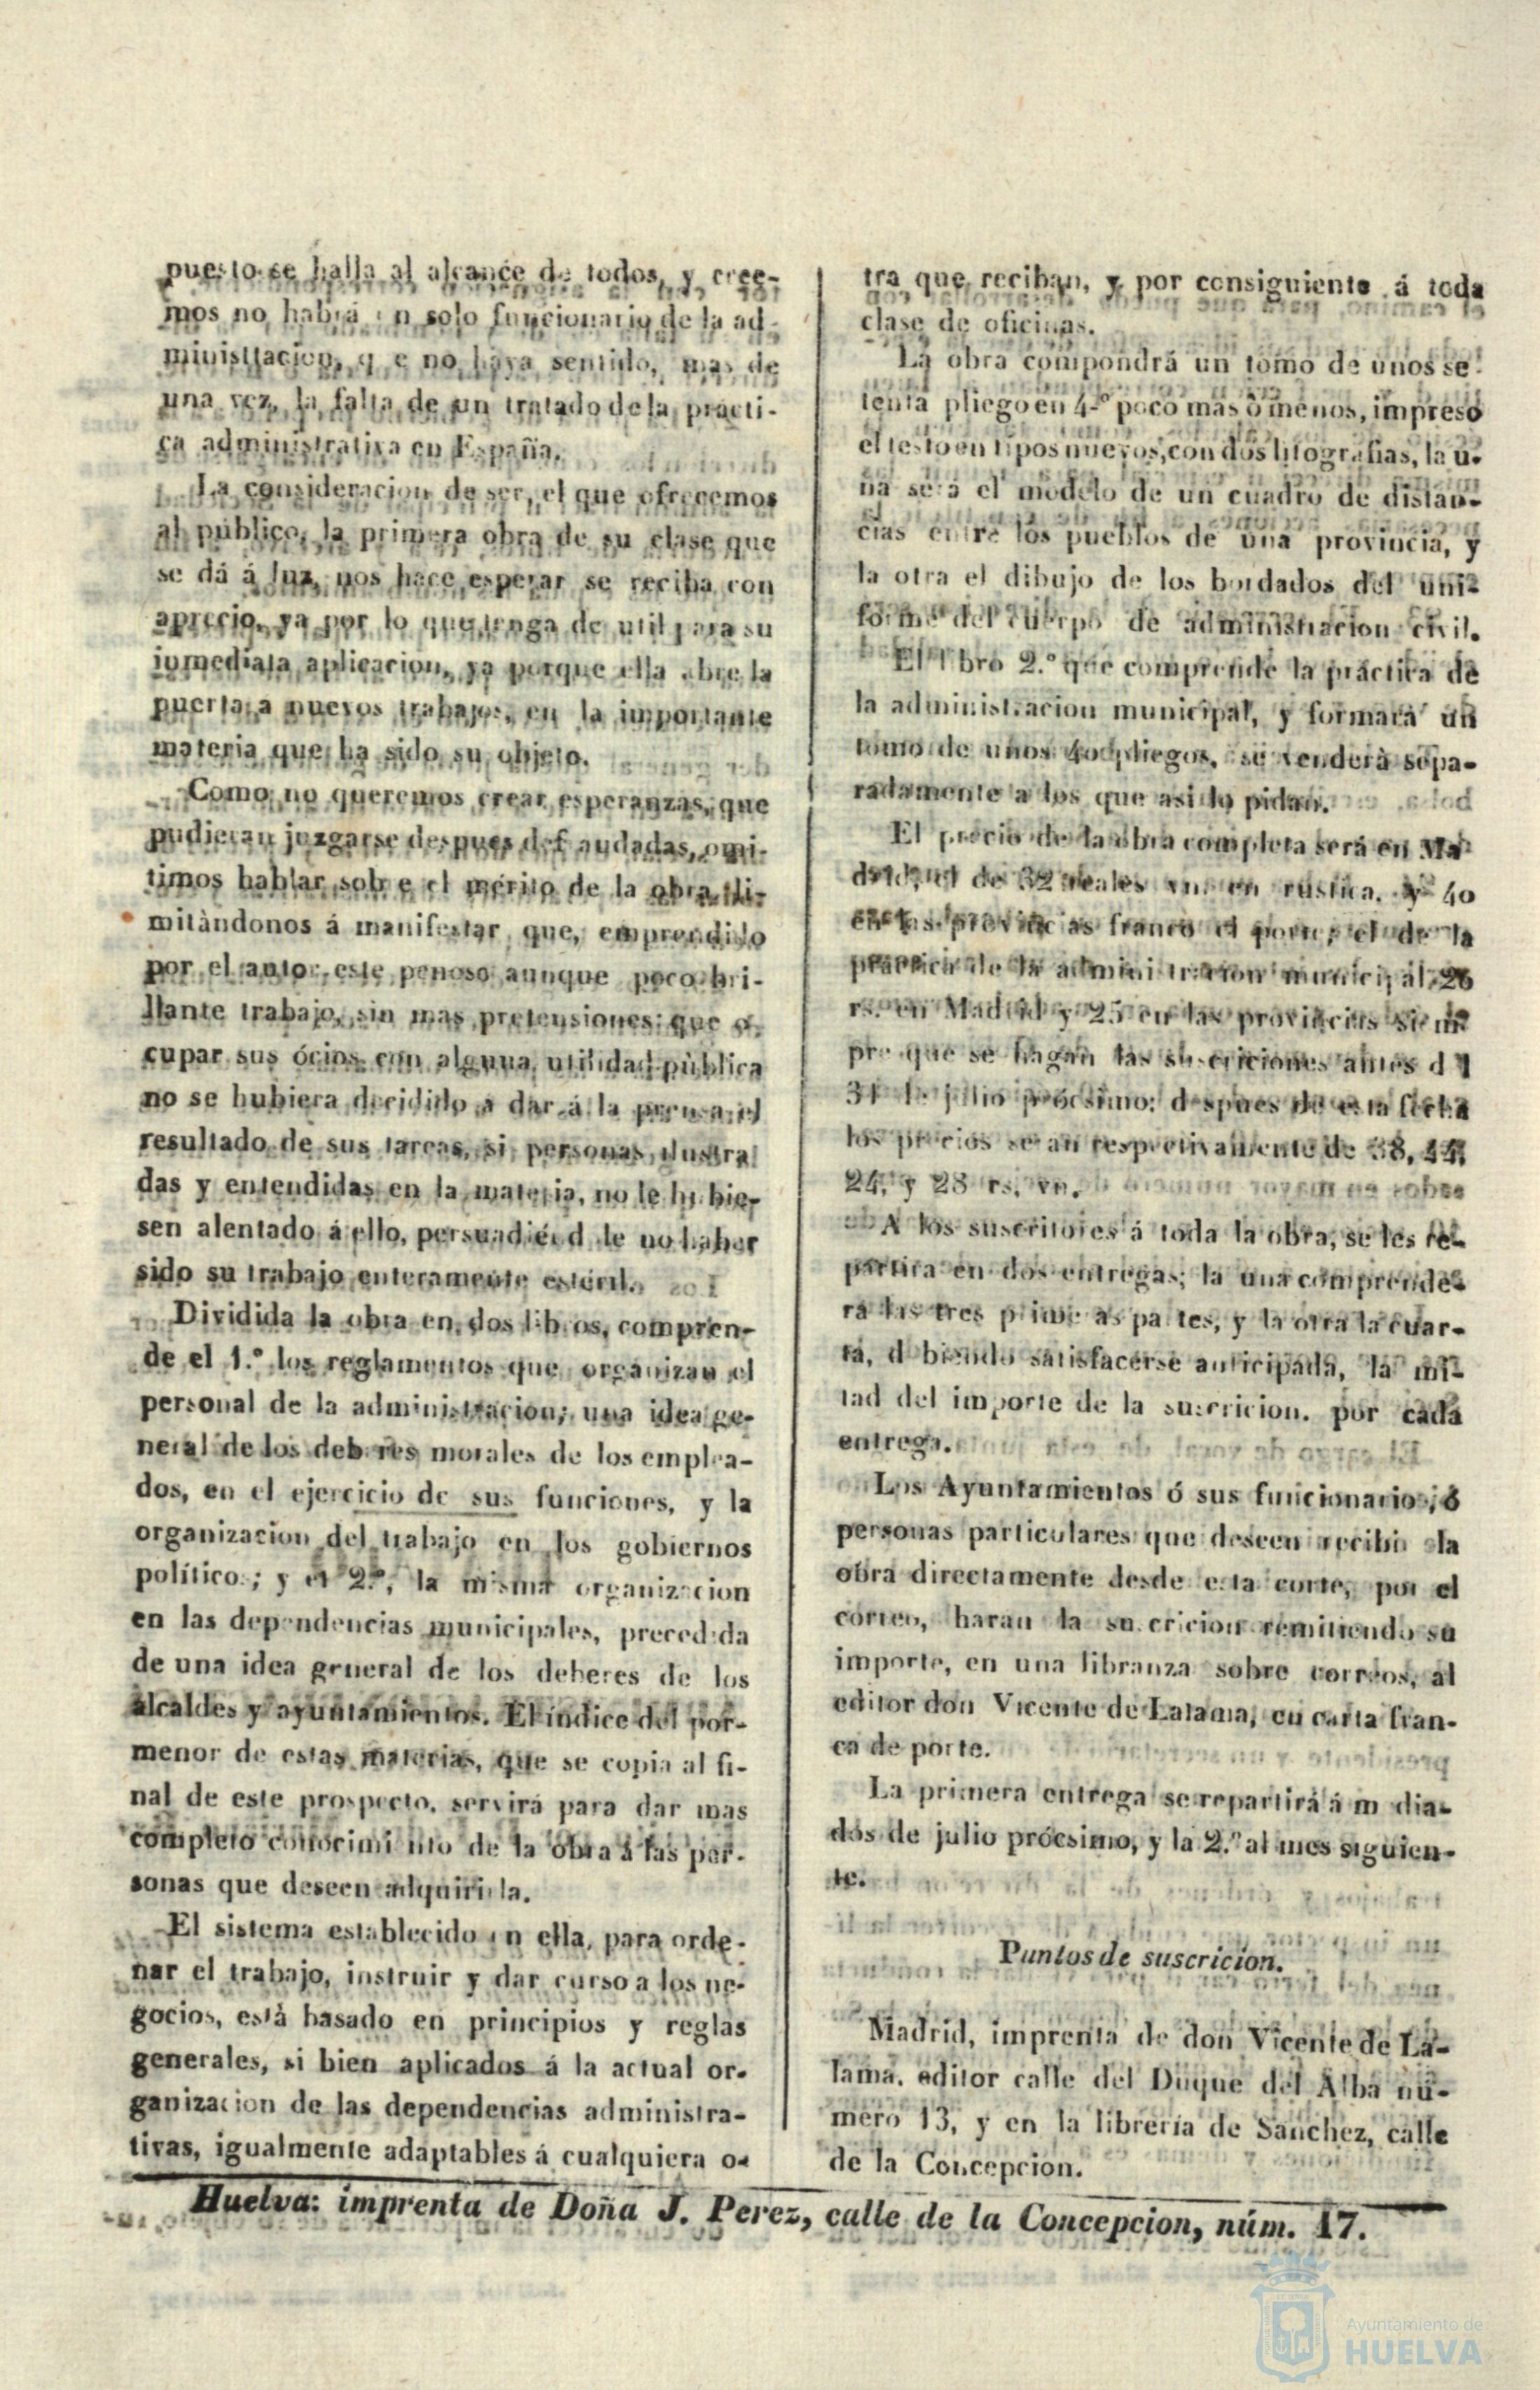 puesto se halla al alcance de todos, y cree-
mos no habrá un solo funcionario de la ad-
ministracion, que no haya sentido, mas de
una vez, la falta de un tratado de la practi-
ca administrativa en España.
La consideracion de ser, el que ofrecemos
al público, la primera obra de su clase que
se dá á luz, nos hace esperar se reciba con
aprecio, ya por lo que tenga de util para su
inmediata aplicacion, ya porque ella abre la
puerta a nuevos trabajos, en la importante
materia que ha sido su objeto.
Como no queremos crear esperanzas, que
pudieran juzgarse despues defraudadas, omi-
timos hablar sobre el mérito de la obra, li-
mitàndonos á manifestar que, emprendido
por el autor este penoso aunque poco bri-
llante trabajo, sin mas pretensiones que o-
cupar sus ócios con alguna utilidad pùblica
no se hubiera decidido a dar á la prensa el
resultado de sus tareas, si personas ilustra
das y entendidas en la materia, no le hubie-
sen alentado á ello, persuadiéndole no haber
sido su trabajo enteramente estéril.
Dividida la obra en dos libros, compren-
de el 1.º los reglamentos que organizan el
personal de la administracion; una idea ge-
neral de los deberes morales de los emplea-
dos, en el ejercicio de sus funciones, y la
organizacion del trabajo en los gobiernos
político.; y el 2.º, la misma organizacion
en las dependencias municipales, precedida
de una idea general de los deberes de los
alcaldes y ayuntamientos. El índice del por-
menor de estas materias, que se copia al fi-
nal de este prospecto, servirá para dar mas
completo conocimiento de la obra á las per-
sonas que deseen adquirirla.
El sistema establecido en ella, para orde-
nar el trabajo, instruir y dar curso a los ne-
gocios, està basado en principios y reglas
generales, si bien aplicados á la actual or-
ganizacion de las dependencias administra-
tivas, igualmente adaptables á cualquiera o-
tra que reciban, y por consiguiente á toda
clase de oficinas.
La obra compondrá un tomo de unos se
tenta pliego en 4.º poco mas ò menos, impreso
el testo en tipos nuevos, con dos litografias, la u-
na será el modelo de un cuadro de distan-
cias entre los pueblos de una provincia, y
la otra el dibujo de los bordados del uni-
forme del cuerpo de administracion civil.
El libro 2.º que comprende la práctica de
la administracion municipal, y formará un
tomo de unos 40 pliegos, se venderà sepa-
radamente a los que asi lo pidan.
El precio de la obra completa será en Ma
drid, el de 32 reales vn. en rústica, y 40
en las provincias franco el porte; el de la
práctica de la administracion municipal, 20
rs. en Madrid y 25 en las provincias siem
pre que se hagan las suscriciones antes del
31 de julio prócsimo: despues de esta fecha
los precios seran respectivamente de 38, 44,
24, y 28 rs. vn.
A los suscritores á toda la obra, se les re-
partira en dos entregas; la una comprende-
rá las tres primeras partes, y la otra la cuar-
ta, debiendo satisfacerse anticipada, la mi-
tad del importe de la suscricion, por cada
entrega.
Los Ayuntamientos ó sus funcionarios, ó
personas particulares que deseen recibir la
obra directamente desde esta corte, por el
correo, haran la suscricion remitiendo su
importe, en una libranza sobre correos, al
editor don Vicente de Lalama, en carta fran-
ca de porte.
La primera entrega se repartirá á m dia-
dos de julio prócsimo, y la 2.ª al mes siguien-
te.
Puntos de suscricion.
Madrid, imprenta de don Vicente de La-
lama, editor calle del Duque del Alba nú-
mero 13, y en la librería de Sanchez, calle
de la Concepcion.
Huelva: imprenta de Doña J. Perez, calle de la Concepcion, núm. 17.
Ayuntamiento de
HUELVA